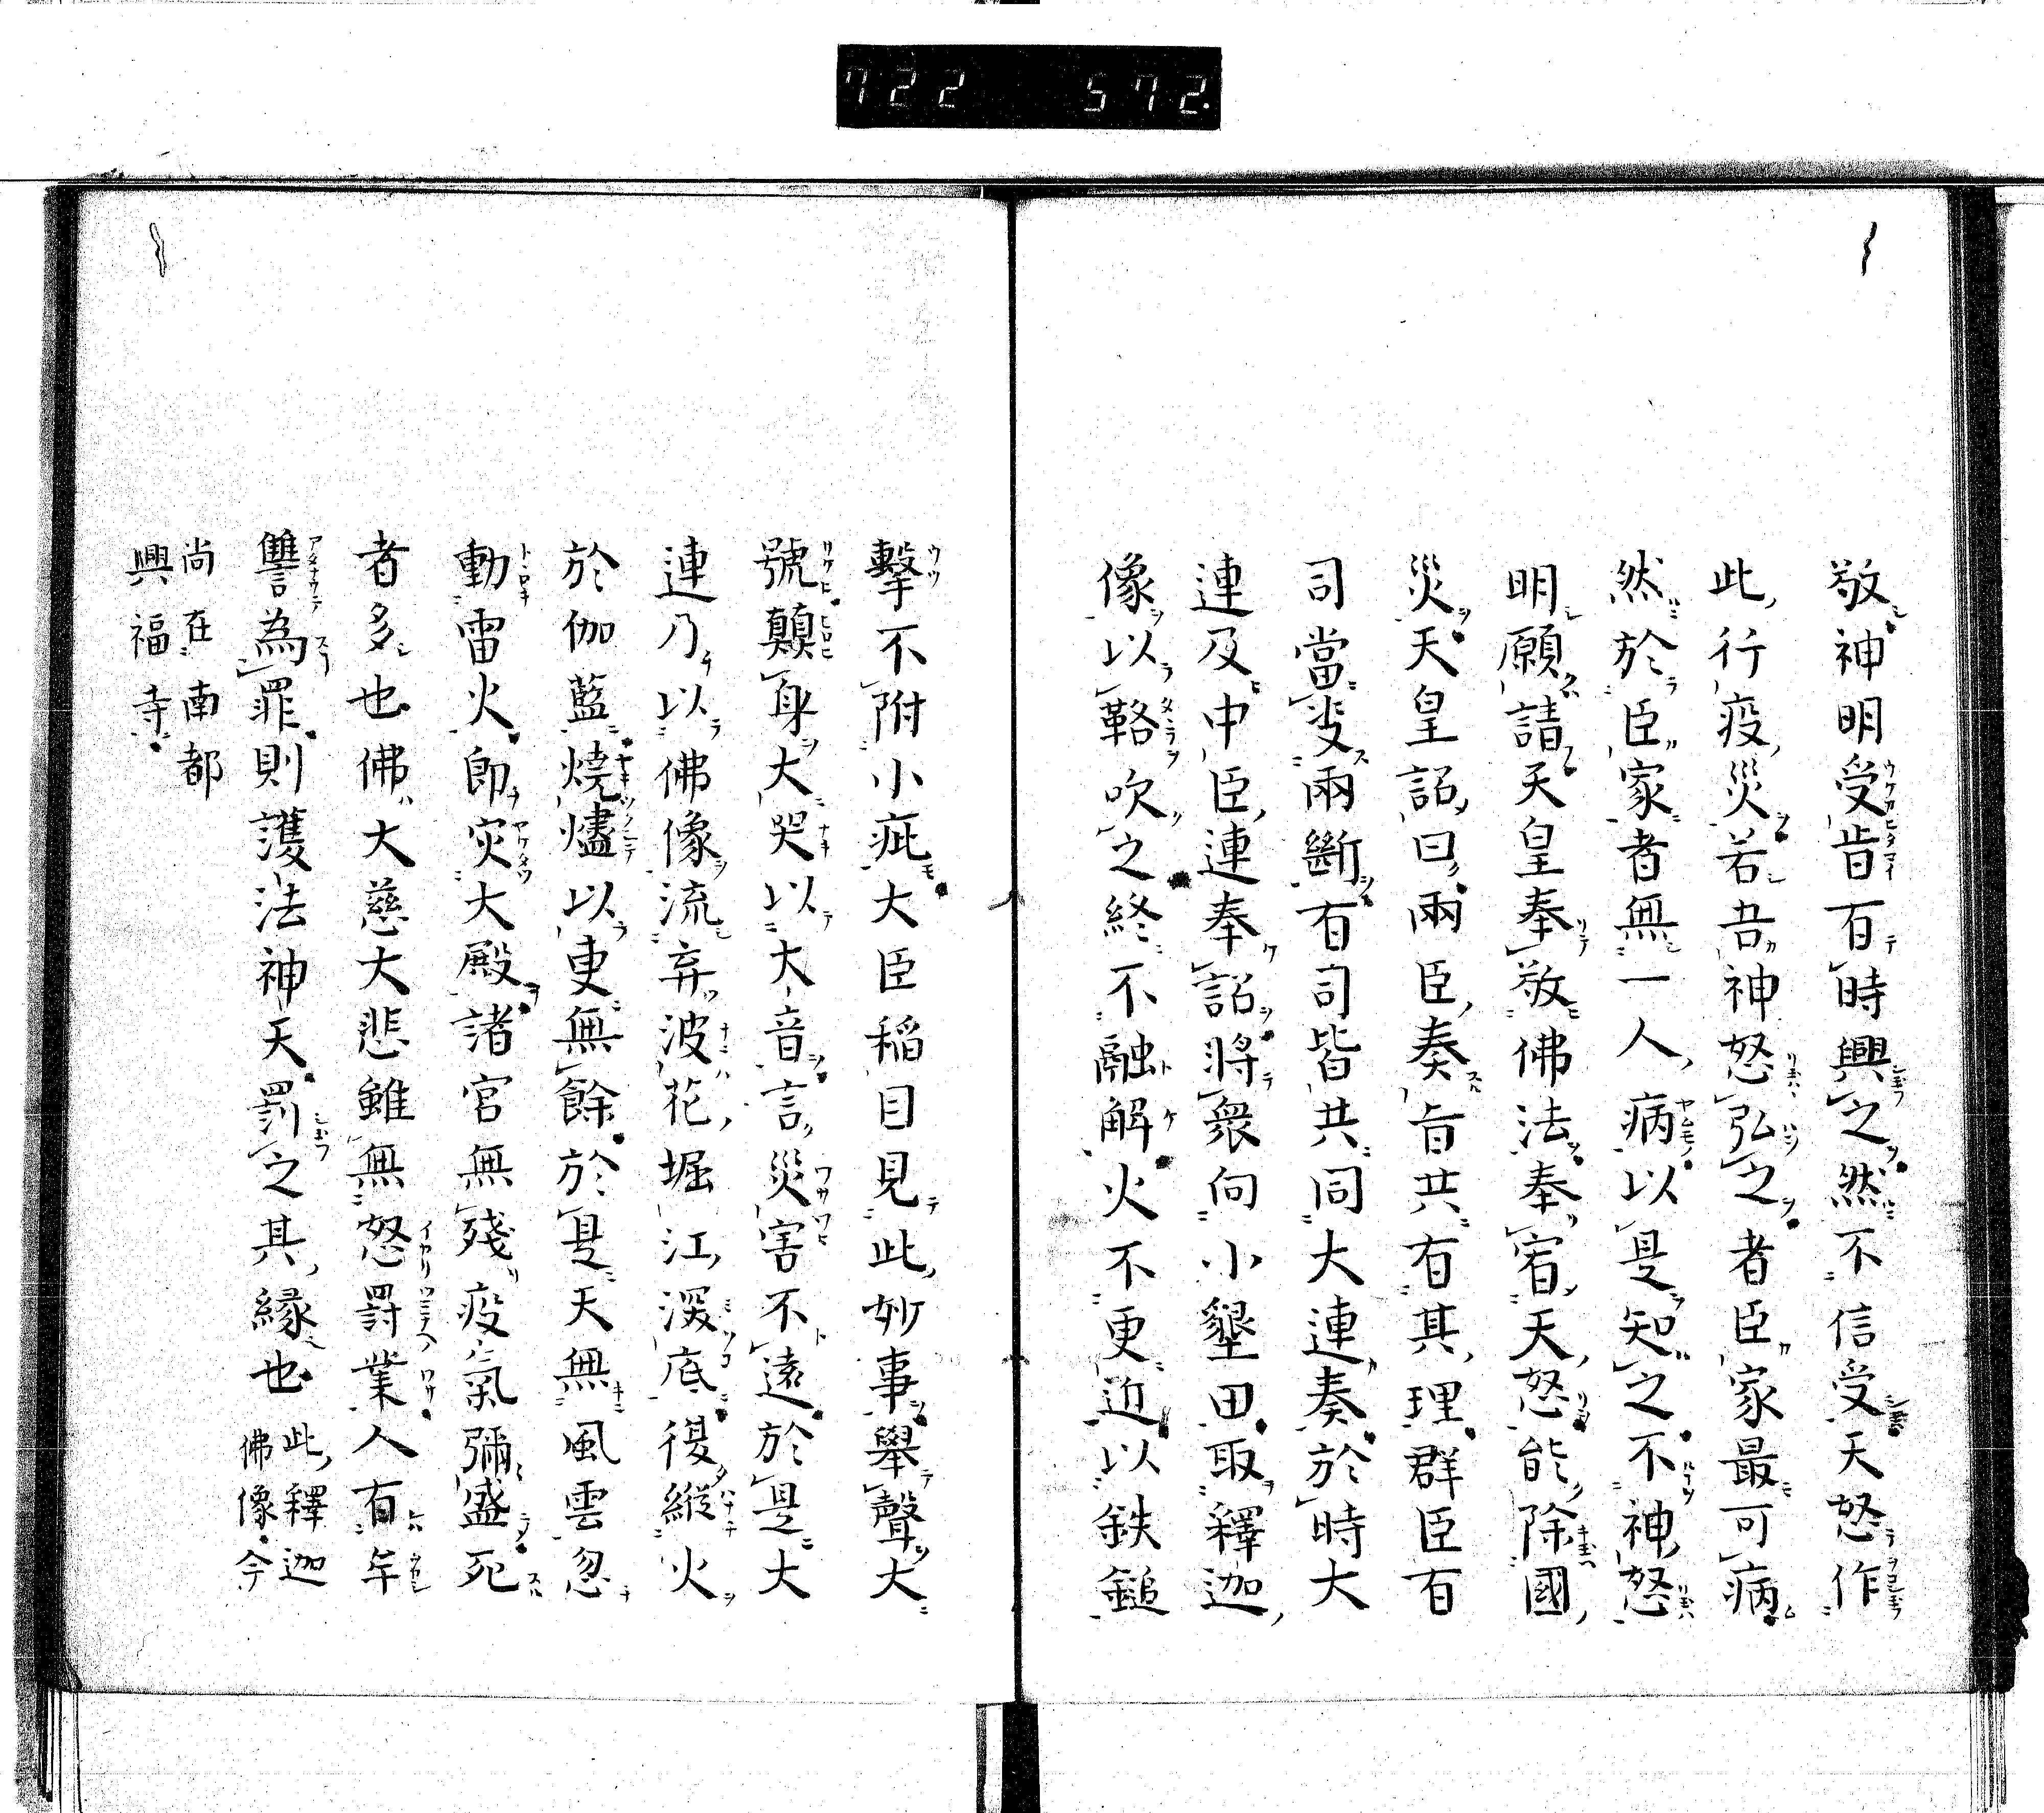 722 572.
敬神明受旨有時興之然不信受天怒作
此行疫災若吾神怒弘之者臣家最可病
然於臣家者無一人病以是知之不神怒
明願請天皇奉敬佛法奉宥天怒能除國
災天皇詔曰兩臣奏旨共有其理群臣百
司當叓兩斷有司皆共同大連奏於時大
連及中臣連奉詔將衆向小墾田取釋迦
像以鞴吹之終不融解火不更近以鉄鎚
擊不附小疵大臣稲目見此妙事舉聲大
號顛身大哭以大音言災害不遠於是大
連乃以佛像流弃波花堀江深底復縱火
於伽藍燒燼以更無餘於是天無風雲忽
動雷火即灾大殿諸官無殘疫氣彌盛死
者多也佛大慈大悲雖無怒罸業人有年
讐為罪則護法神天罰之其縁也此釋迦
佛像今
尚在南都
興福寺